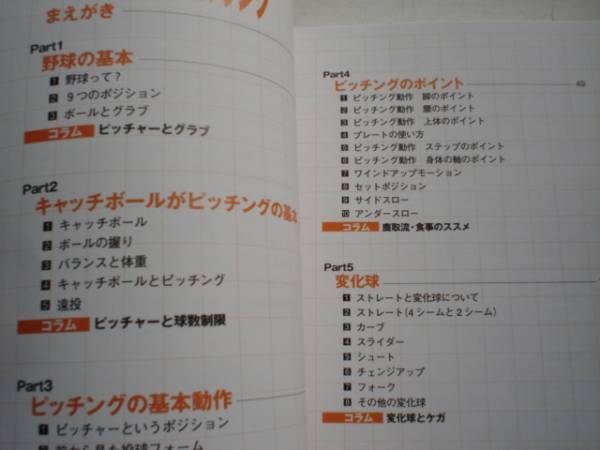 まえがき
Part1
野球の基本
1 野球って?
2 9つのポジション
3 ボールとグラブ
コラム ピッチャーとグラブ
Part2
キャッチボールがピッチングの基本
1 キャッチボール
2 ボールの握り
3 バランスと体重
4 キャッチボールとピッチング
5 遠投
コラム ピッチャーと球数制限
Part3
ピッチングの基本動作
1 ピッチャーというポジション
前から見た投球フォーム
Part4
ピッチングのポイント 49
1 ピッチング動作 脚のポイント
2 ピッチング動作 腰のポイント
3 ピッチング動作 上体のポイント
4 プレートの使い方
5 ピッチング動作 ステップのポイント
6 ピッチング動作 身体の軸のポイント
7 ワインドアップモーション
8 セットポジション
9 サイドスロー
10 アンダースロー
コラム 鹿取流・食事のススメ
Part5
変化球
1 ストレートと変化球について
2 ストレート(4シームと2シーム)
3 カーブ
4 スライダー
5 シュート
6 チェンジアップ
7 フォーク
8 その他の変化球
コラム 変化球とケガ